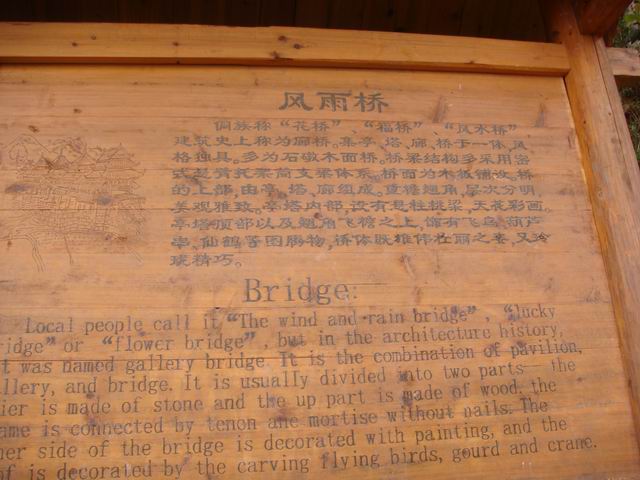 风雨桥
侗族称“花桥”、“福桥”、“风水桥”
建筑史上称为廊桥。集亭、塔、廊、桥于一体,风
格独具。多为石墩木面桥。桥梁结构多采用密
式悬臂托架简支梁体系。桥面为木板铺设。桥
的上部,由亭、塔、廊组成。重檐翘角,层次分明,
美观雅致。亭塔内部,设有悬柱挑梁,天花彩画。
亭塔顶部以及翘角飞檐之上,饰有飞鸟、葫芦
串、仙鹤等图腾物,桥体既雄伟壮丽之姿,又玲
珑精巧。
Bridge:
Local people call it “The wind and rain bridge”, “lucky
ridge” or “flower bridge”, but in the architecture history,
t was named gallery bridge. It is the combination of pavilion,
llery, and bridge. It is usually divided into two parts— the
ier is made of stone and the up part is made of wood. the
ame is connected by tenon ane mortise without nails. The
ner side of the bridge is decorated with painting, and the
of is decorated by the carving flying birds, gourd and crane.